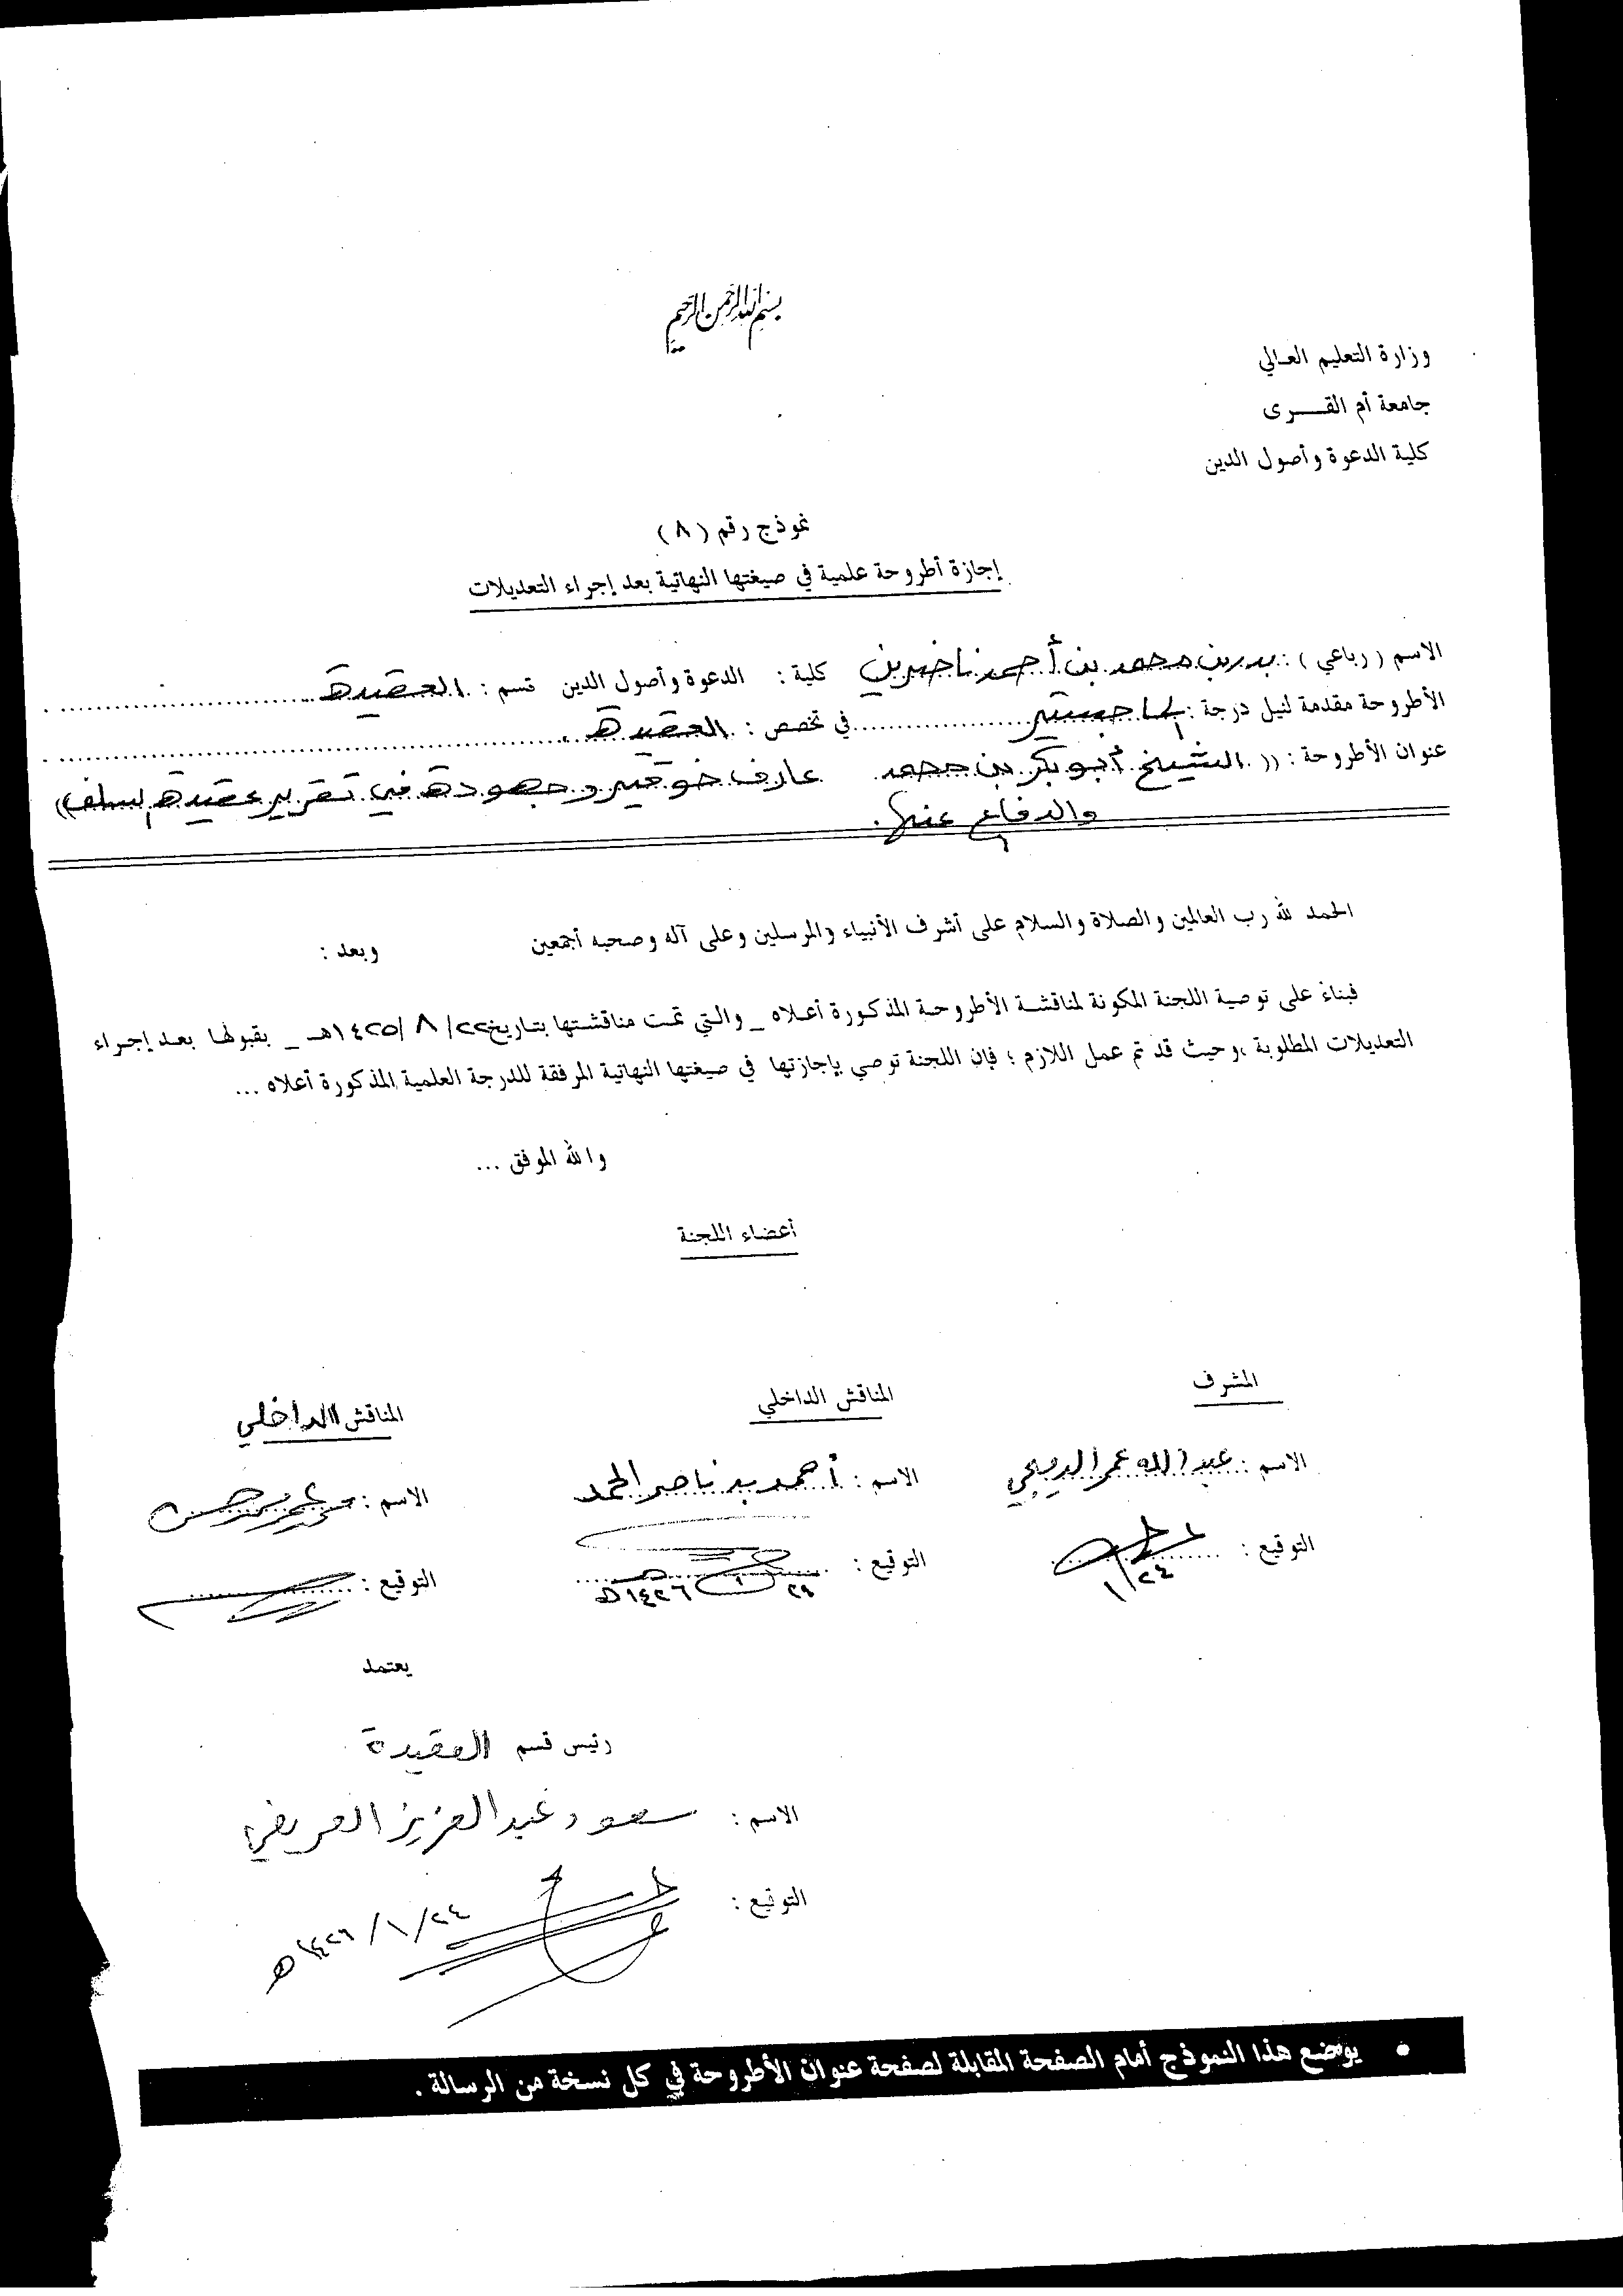 بسم الله الرحمن الرحيم
وزارة التعليم العالي
جامعة أم القرى
كلية الدعوة وأصول الدين
نموذج رقم (٨)
إجازة أطروحة علمية في صيغتها النهائية بعد إجراء التعديلات
الاسم (رباعي) : بدر بن محمد بن أحمد ناضرين كلية : الدعوة وأصول الدين قسم : العقيدة
الأطروحة مقدمة لنيل درجة : الماجستير في تخصص : العقيدة
عنوان الأطروحة : (( الشيخ أبو بكر بن محمد عارف خوقير وجهوده في تقرير عقيدة السلف ))
والدفاع عنها .
الحمد لله رب العالمين والصلاة والسلام على أشرف الأنبياء والمرسلين وعلى آله وصحبه أجمعين وبعد :
فبناءً على توصية اللجنة المكونة لمناقشة الأطروحة المذكورة أعلاه _ والتي تمت مناقشتها بتاريخ ٢٢/ ٨ /١٤٢٥هـ _ بقبولها بعد إجراء
التعديلات المطلوبة ،وحيث قد تم عمل اللازم ؛ فإن اللجنة توصي بإجازتها في صيغتها النهائية المرفقة للدرجة العلمية المذكورة أعلاه ...
والله الموفق ...
أعضاء اللجنة
المشرف المناقش الداخلي المناقش الداخلي
الاسم : عبدالله عمر الدميجي الاسم : أحمد بن ناصر الحمد الاسم :
التوقيع : ٢٤/١ التوقيع : ٢٩ ١ ١٤٢٦هـ التوقيع :
يعتمد
رئيس قسم العقيدة
الاسم : سعود عبدالعزيز العريفي
التوقيع : ٢٤/١/١٤٢٦هـ
• يوضع هذا النموذج أمام الصفحة المقابلة لصفحة عنوان الأطروحة في كل نسخة من الرسالة .